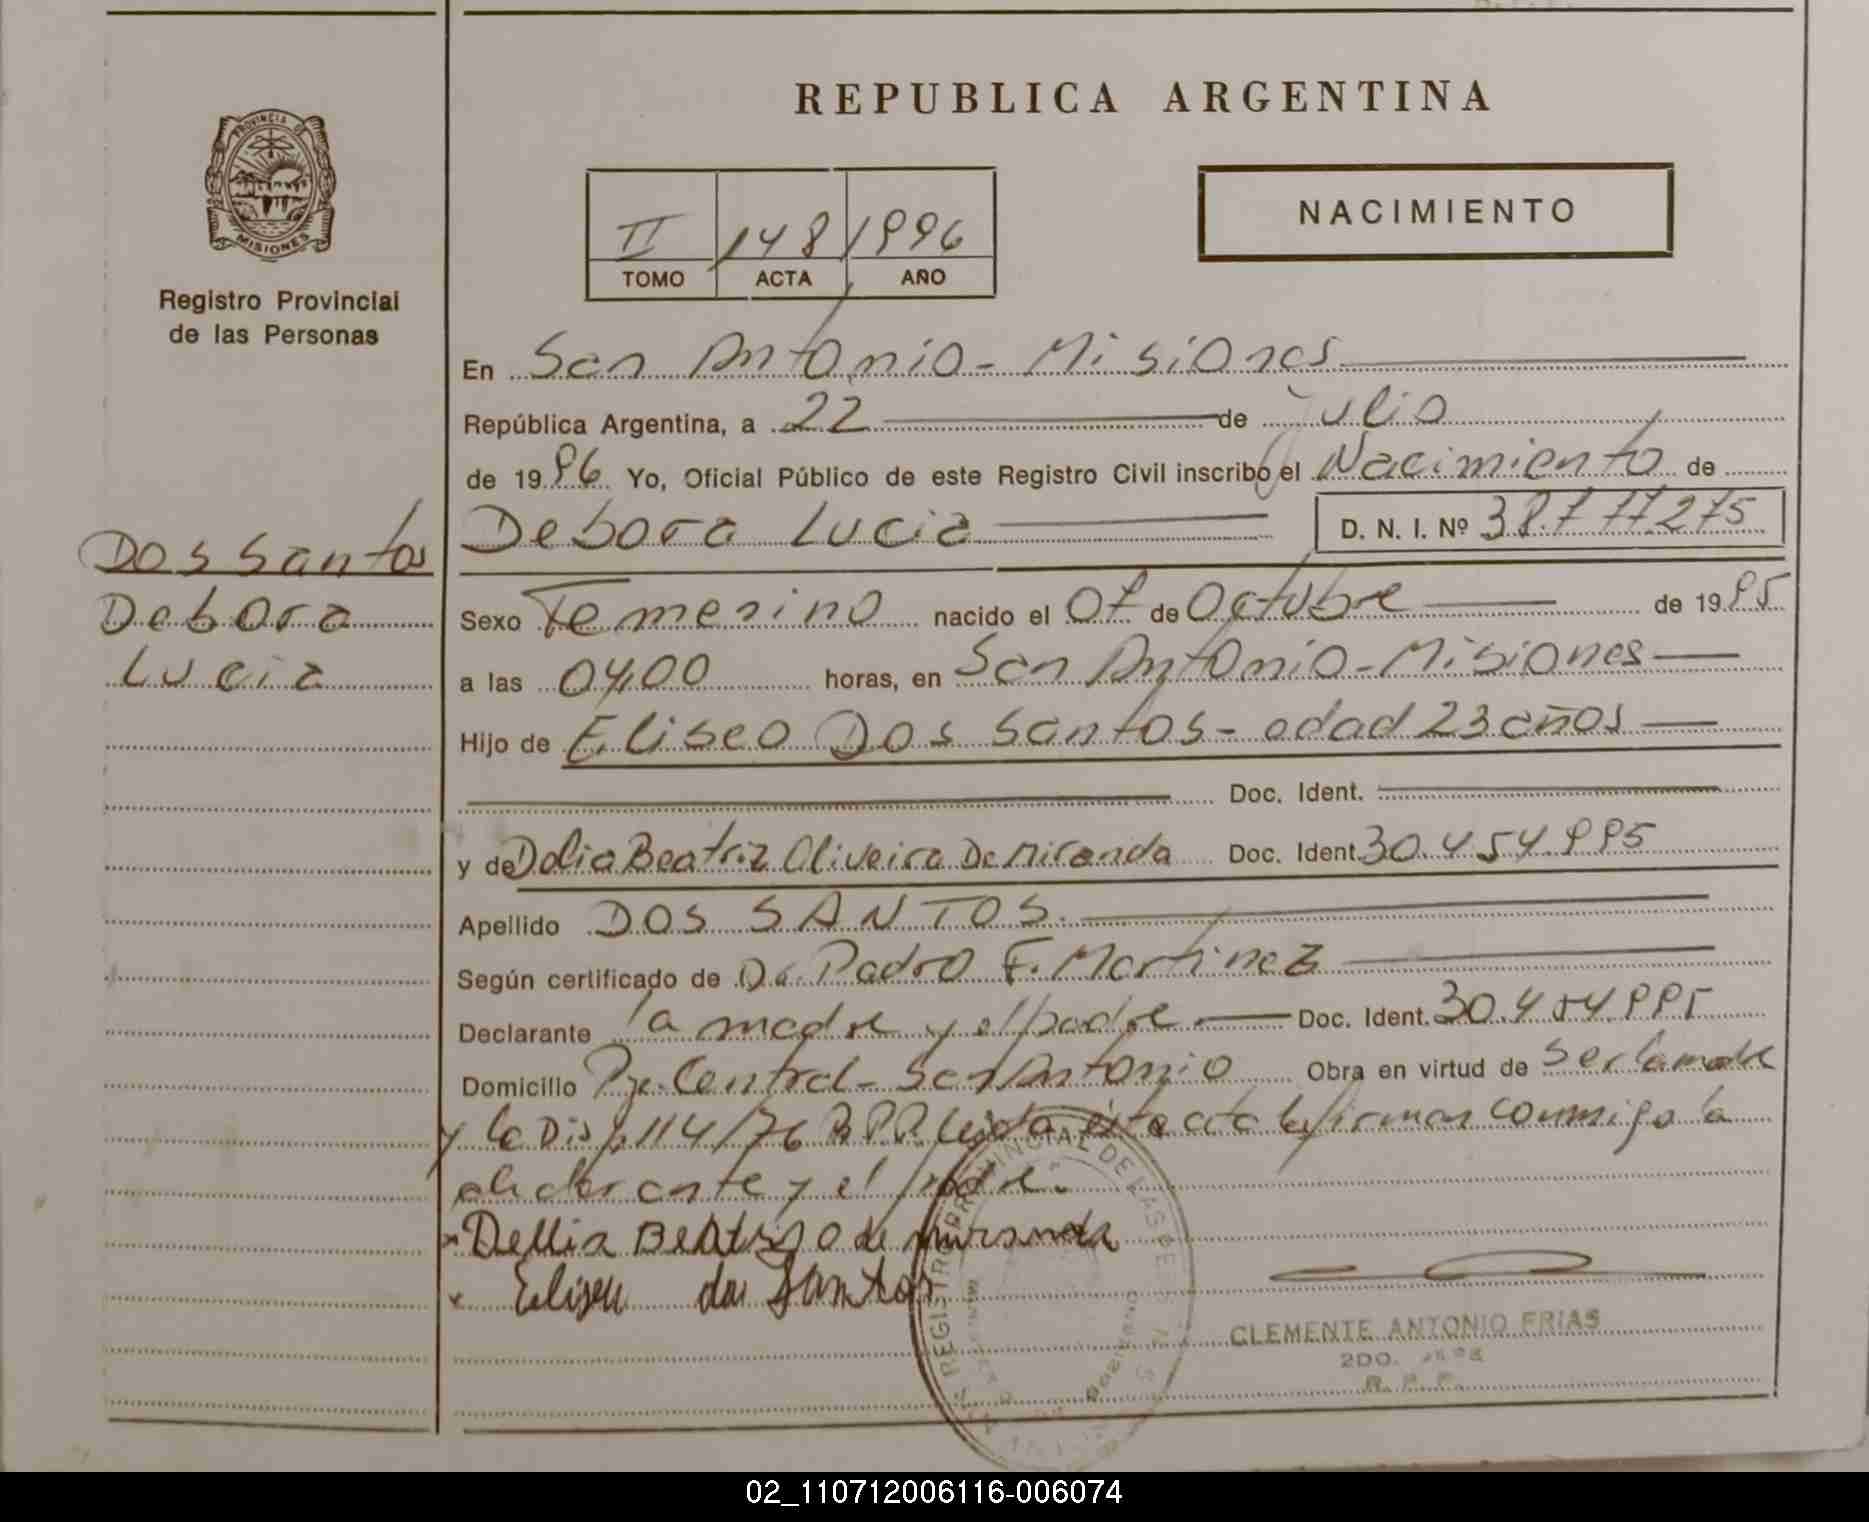 REPUBLICA ARGENTINA
PROVINCIA DE
MISIONES
Registro Provincial
de las Personas
II 148 1996
TOMO ACTA AÑO
NACIMIENTO
En San Antonio - Misiones
República Argentina, a 22 de Julio
de 1996 Yo, Oficial Público de este Registro Civil inscribo el Nacimiento de
Debora Lucia D. N. I. Nº
Dos Santos
Debora
Lucia
Sexo Femenino nacido el 07 de Octubre de 1995
a las 04,00 horas, en San Antonio - Misiones
Hijo de Eliseo Dos Santos - edad 23 años
Doc. Ident.
y de Delia Beatriz Oliveira De Miranda Doc. Ident. 30.454.995
Apellido DOS SANTOS.
Según certificado de Dr. Pedro F. Martinez
Declarante la madre y el padre Doc. Ident. 30.454.995
Domicilio Pje. Central - San Antonio Obra en virtud de ser la madre
y la Disp. 114/76 R.P.P. leida esta acta la firman conmigo la
declarante y el padre.
Dellia Beatriz O de miranda
Eliseu dos Santos
REGISTRO PROVINCIAL DE LAS PE
CLEMENTE ANTONIO FRIAS
2DO. JEFE
R. P. P.
02_110712006116-006074